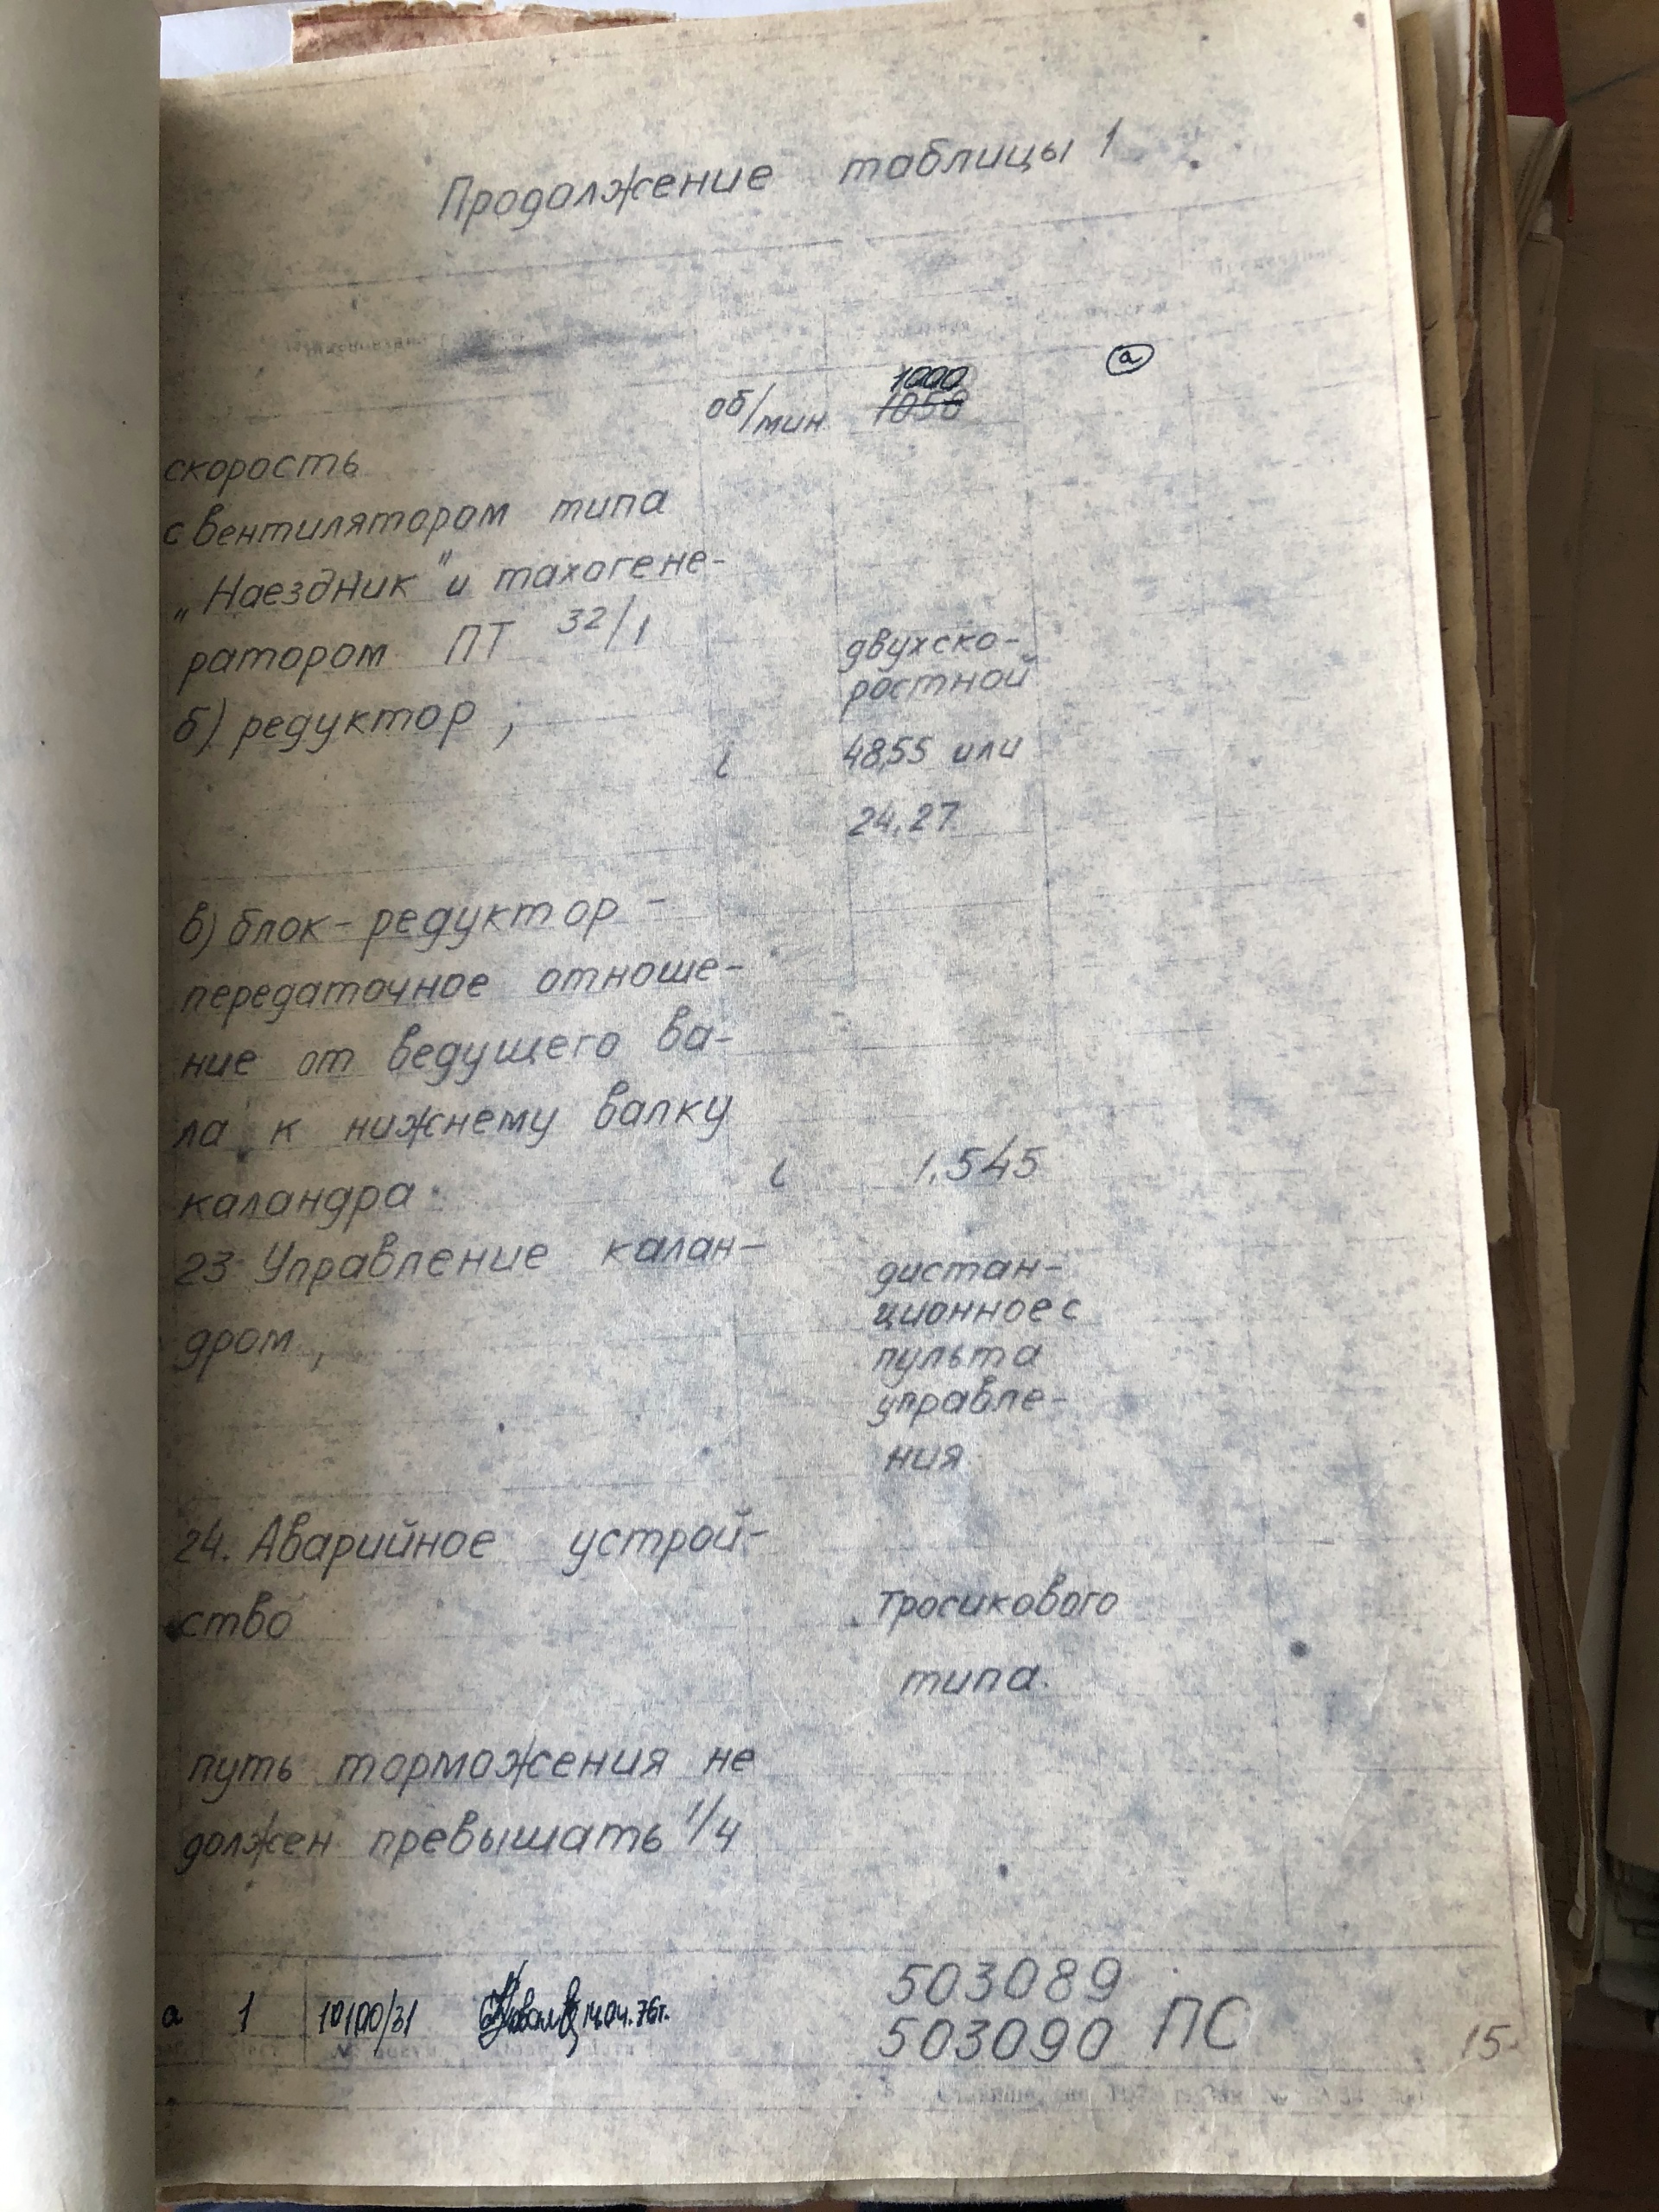 Продолжение таблицы 1
а
1000
об/мин 1050
скорость
с вентилятором типа
„Наездник" и тахогене-
ратором ПТ 32/1
двухско-
ростной
б) редуктор,
i 48,55 или
24,27
в) блок-редуктор -
передаточное отноше-
ние от ведущего ва-
ла к нижнему валку
каландра i 1,545
23 Управление калан-
дром,
дистан-
ционное с
пульта
управле-
ния
24. Аварийное устрой-
ство
тросикового
типа.
путь торможения не
должен превышать 1/4
а 1 10100/31 14.04.76г.
503089
503090 ПС
15